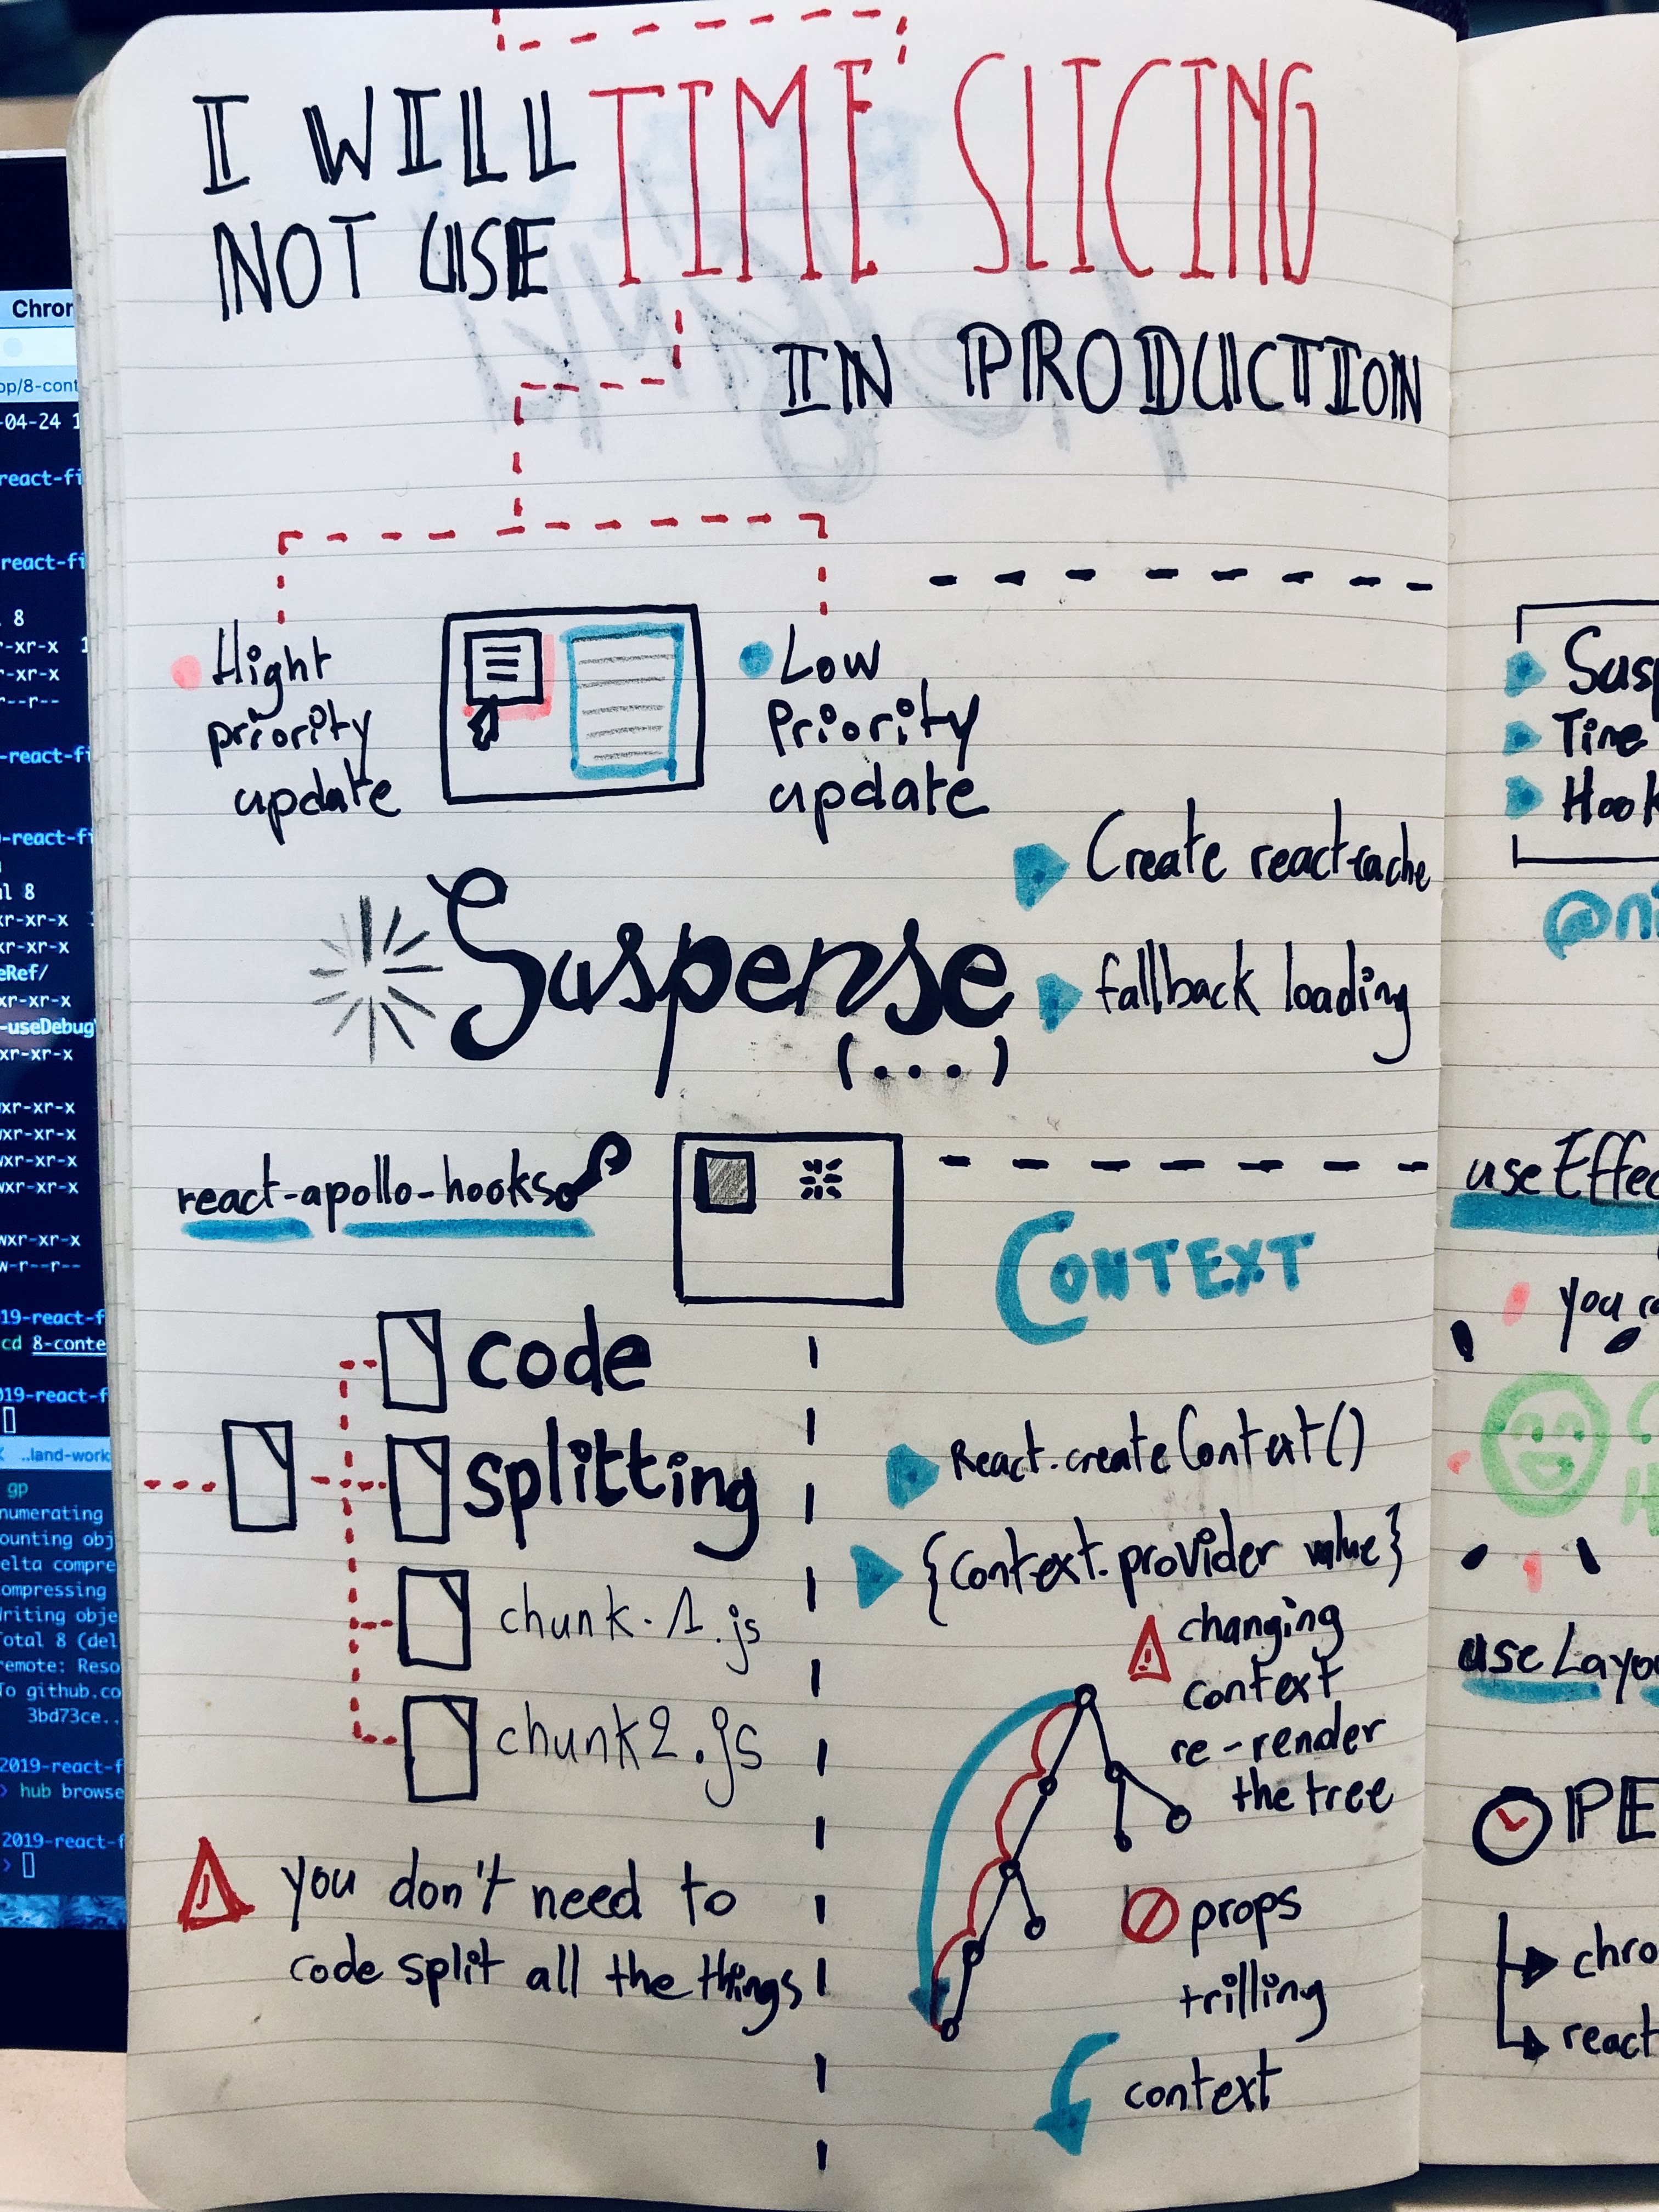 I WILL
NOT USE
TIME SLICING
IN PRODUCTION
Hight
priority
update
Low
Priority
update
Suspense
(...)
Create react-cache
fallback loading
react-apollo-hooks
code
splitting
chunk.1.js
chunk2.js
you don't need to
code split all the things
CONTEXT
React.createContext()
{Context.provider value}
changing
context
re-render
the tree
props
trilling
context
Susp
Time
Hook
@ni
useEffec
you
useLayou
PE
chro
react
Chror
op/8-cont
-04-24 1
react-fi
react-fi
8
r-xr-x
r-xr-x
r--r--
-react-fi
-react-fi
al 8
xr-xr-x
xr-xr-x
eRef/
xr-xr-x
-useDebug
xr-xr-x
wxr-xr-x
wxr-xr-x
wxr-xr-x
wxr-xr-x
wxr-xr-x
w-r--r--
19-react-f
cd 8-conte
019-react-f
..land-work
gp
numerating
ounting obj
elta compre
ompressing
riting obje
Total 8 (del
remote: Reso
To github.co
3bd73ce..
2019-react-f
› hub browse
2019-react-f
›